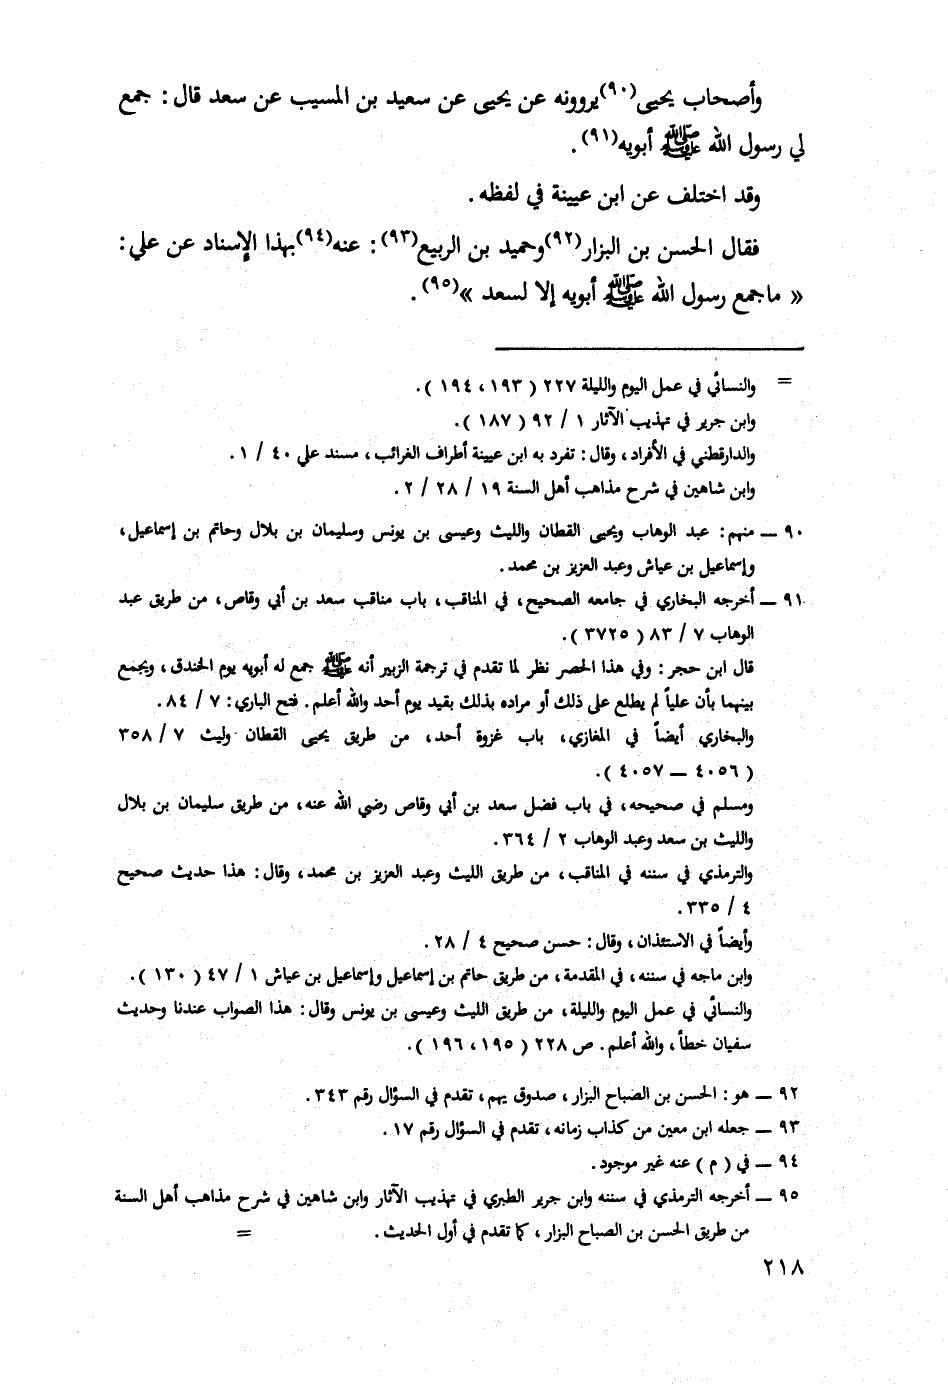 وأصحاب يحيى(٩٠)يروونه عن يحيى عن سعيد بن المسيب عن سعد قال : جمع
لي رسول الله ﷺ أبويه(٩١) .
وقد اختلف عن ابن عيينة في لفظه .
فقال الحسن بن البزار(٩٢)وحميد بن الربيع(٩٣) : عنه(٩٤)بهذا الإسناد عن علي :
« ماجمع رسول الله ﷺ أبويه إلا لسعد »(٩٥) .
= والنسائي في عمل اليوم والليلة ٢٢٧ ( ١٩٣ ، ١٩٤ ) .
وابن جرير في تهذيب الآثار ١ / ٩٢ ( ١٨٧ ) .
والدارقطني في الأفراد ، وقال : تفرد به ابن عيينة أطراف الغرائب ، مسند علي ٤٠ / ١ .
وابن شاهين في شرح مذاهب أهل السنة ١٩ / ٢٨ / ٢ .
٩٠ ــ منهم : عبد الوهاب ويحيى القطان والليث وعيسى بن يونس وسليمان بن بلال وحاتم بن إسماعيل ،
وإسماعيل بن عياش وعبد العزيز بن محمد .
٩١ ــ أخرجه البخاري في جامعه الصحيح ، في المناقب ، باب مناقب سعد بن أبي وقاص ، من طريق عبد
الوهاب ٧ / ٨٣ ( ٣٧٢٥ ) .
قال ابن حجر : وفي هذا الحصر نظر لما تقدم في ترجمة الزبير أنه ﷺ جمع له أبويه يوم الخندق ، ويجمع
بينهما بأن علياً لم يطلع على ذلك أو مراده بذلك بقيد يوم أحد والله أعلم . فتح الباري : ٧ / ٨٤ .
والبخاري أيضاً في المغازي ، باب غزوة أحد ، من طريق يحيى القطان وليث ٧ / ٣٥٨
( ٤٠٥٦ ــ ٤٠٥٧ ) .
ومسلم في صحيحه ، في باب فضل سعد بن أبي وقاص رضي الله عنه ، من طريق سليمان بن بلال
والليث بن سعد وعبد الوهاب ٢ / ٣٦٤ .
والترمذي في سننه في المناقب ، من طريق الليث وعبد العزيز بن محمد ، وقال : هذا حديث صحيح
٤ / ٣٣٥ .
وأيضاً في الاستئذان ، وقال : حسن صحيح ٤ / ٢٨ .
وابن ماجه في سننه ، في المقدمة ، من طريق حاتم بن إسماعيل وإسماعيل بن عياش ١ / ٤٧ ( ١٣٠ ) .
والنسائي في عمل اليوم والليلة ، من طريق الليث وعيسى بن يونس وقال : هذا الصواب عندنا وحديث
سفيان خطأ ، والله أعلم . ص ٢٢٨ ( ١٩٥ ، ١٩٦ ) .
٩٢ ــ هو : الحسن بن الصباح البزار ، صدوق يهم ، تقدم في السؤال رقم ٣٤٣ .
٩٣ ــ جعله ابن معين من كذاب زمانه ، تقدم في السؤال رقم ١٧ .
٩٤ ــ في ( م ) عنه غير موجود .
٩٥ ــ أخرجه الترمذي في سننه وابن جرير الطبري في تهذيب الآثار وابن شاهين في شرح مذاهب أهل السنة
من طريق الحسن بن الصباح البزار ، كما تقدم في أول الحديث . =
٢١٨